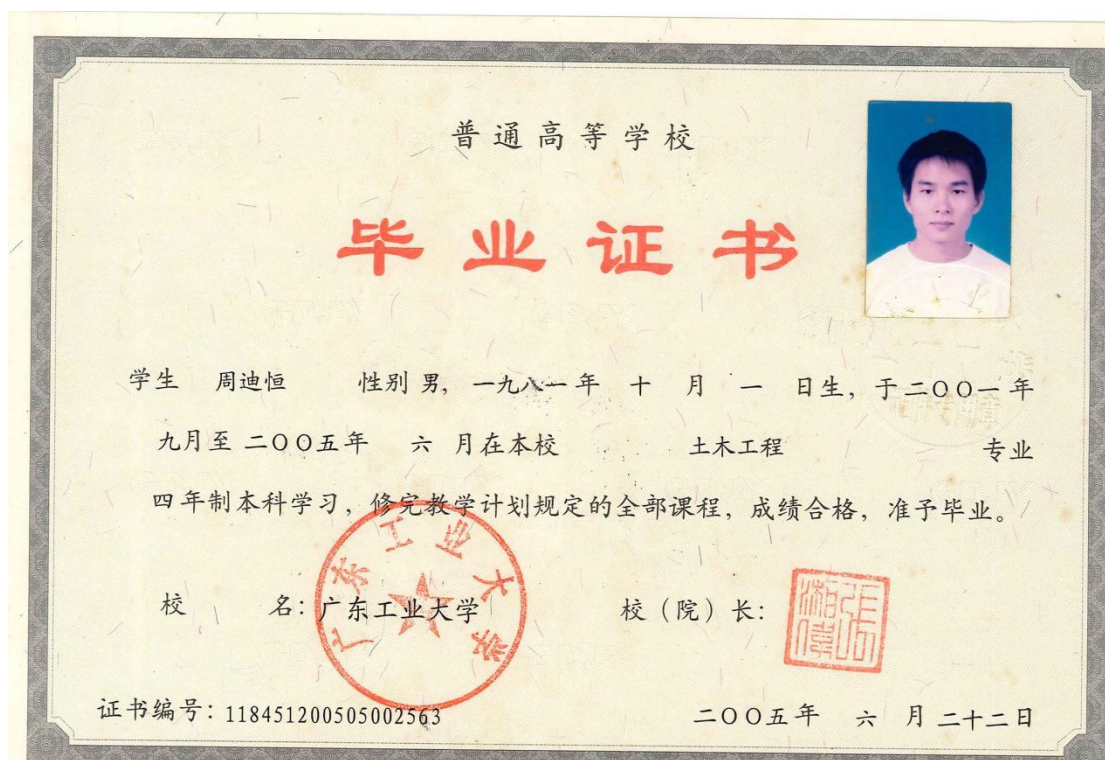 普通高等学校
毕业证书
学生 周迪恒 性别 男, 一九八一年 十 月 一 日生, 于二〇〇一年
九月至 二〇〇五年 六 月在本校 土木工程 专业
四年制本科学习, 修完教学计划规定的全部课程, 成绩合格, 准予毕业。
广东工业大学
校 名: 广东工业大学 校(院)长:
证书编号: 118451200505002563 二〇〇五年 六 月 二十二日